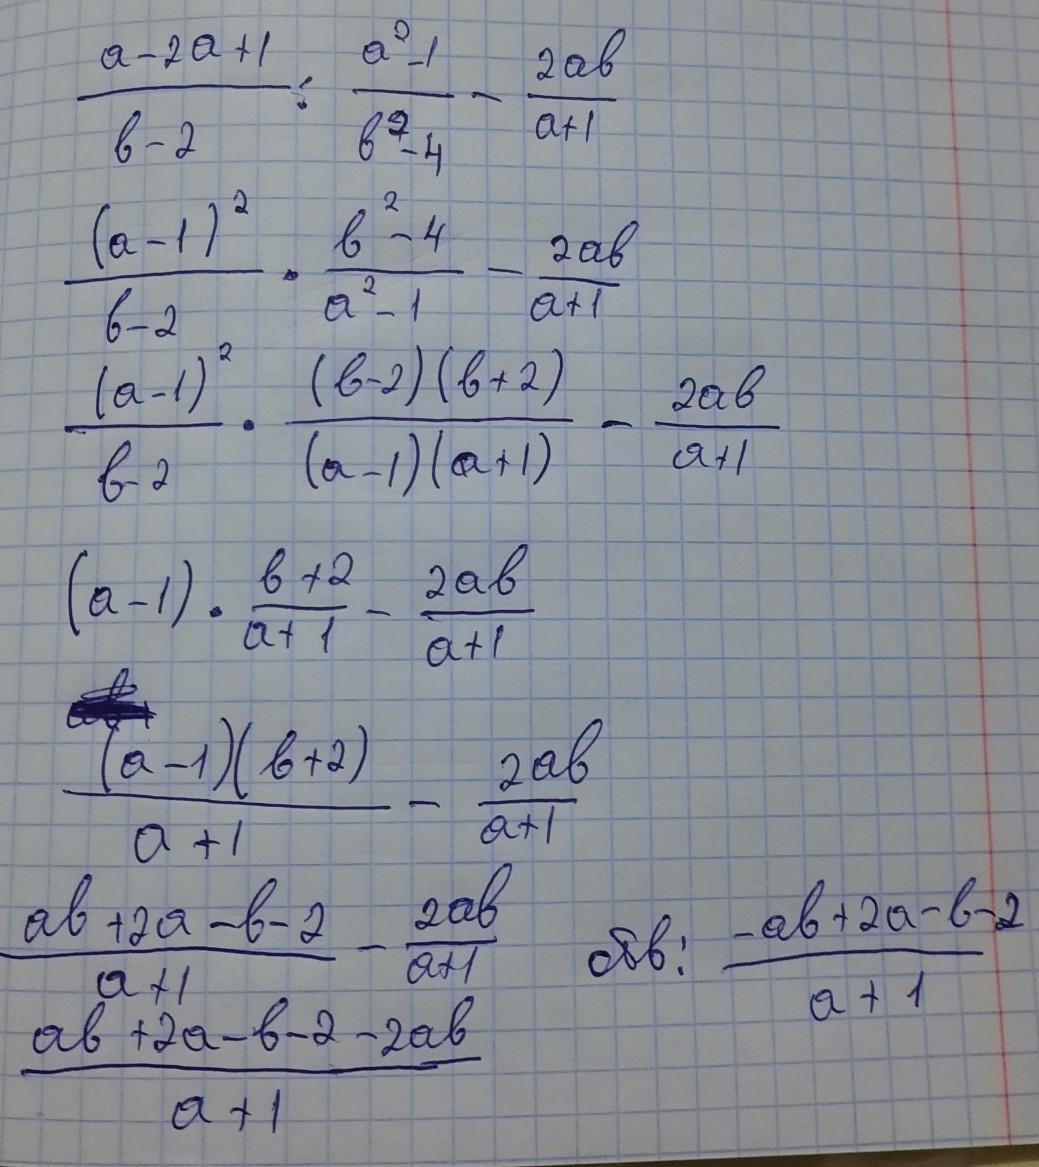 (a-2a+1)/(b-2) : (a²-1)/(b²-4) - 2ab/(a+1)
(a-1)²/(b-2) · (b²-4)/(a²-1) - 2ab/(a+1)
(a-1)²/(b-2) · (b-2)(b+2)/((a-1)(a+1)) - 2ab/(a+1)
(a-1) · (b+2)/(a+1) - 2ab/(a+1)
(a-1)(b+2)/(a+1) - 2ab/(a+1)
(ab+2a-b-2)/(a+1) - 2ab/(a+1)
(ab+2a-b-2-2ab)/(a+1)
отв: (-ab+2a-b-2)/(a+1)